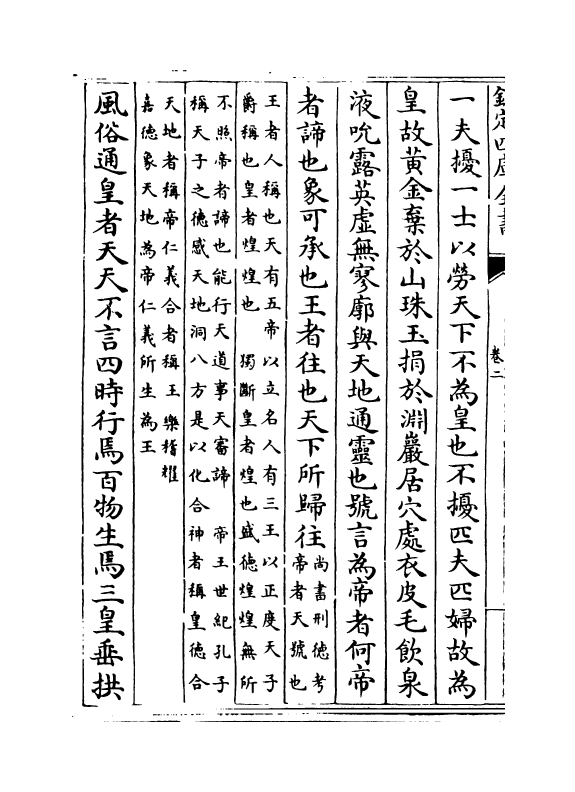 欽定四庫全書
卷二
一夫擾一士以勞天下不為皇也不擾匹夫匹婦故為
皇故黃金棄於山珠玉捐於淵巖居穴處衣皮毛飲泉
液吮露英虛無寥廓與天地通靈也號言為帝者何帝
者諦也象可承也王者往也天下所歸往尚書刑德考
帝者天號也
王者人稱也天有五帝以立名人有三王以正度天子
爵稱也皇者煌煌也 獨斷皇者煌也盛德煌煌無所
不照帝者諦也能行天道事天審諦 帝王世紀孔子
稱天子之德感天地洞八方是以化合神者稱皇德合
天地者稱帝仁義合者稱王 樂稽耀
嘉德象天地為帝仁義所生為王
風俗通皇者天天不言四時行焉百物生焉三皇垂拱